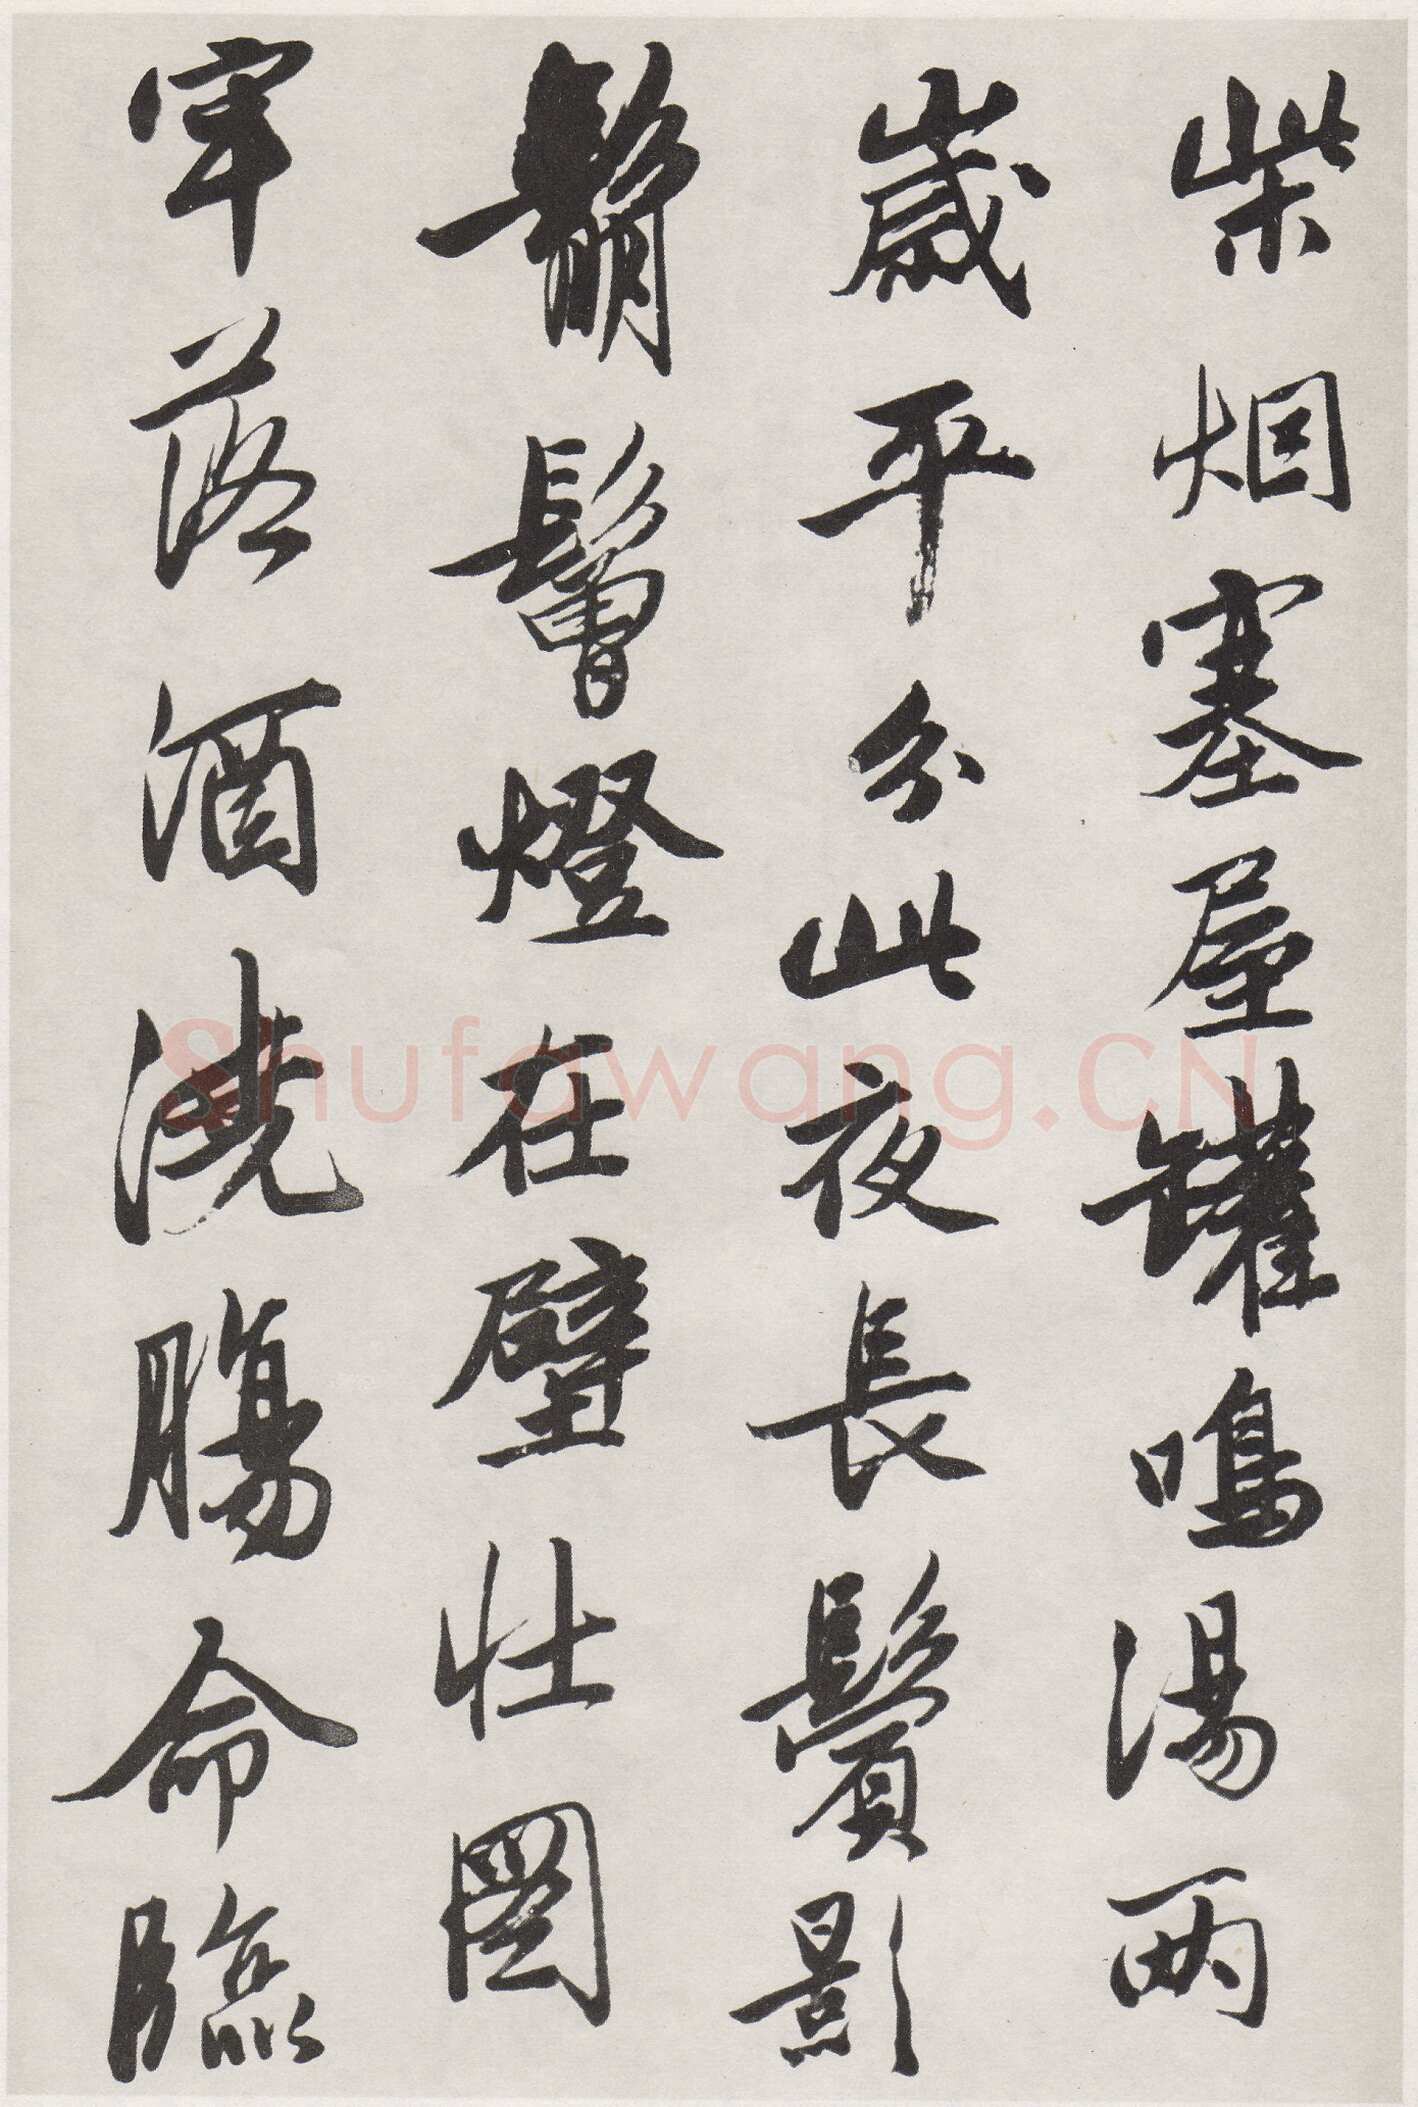 柴烟塞屋罐鳴湯兩
歲平分此夜長鬢影
鬅鬙燈在壁壯圖
牢落酒澆腸命臨
Shufawang.CN